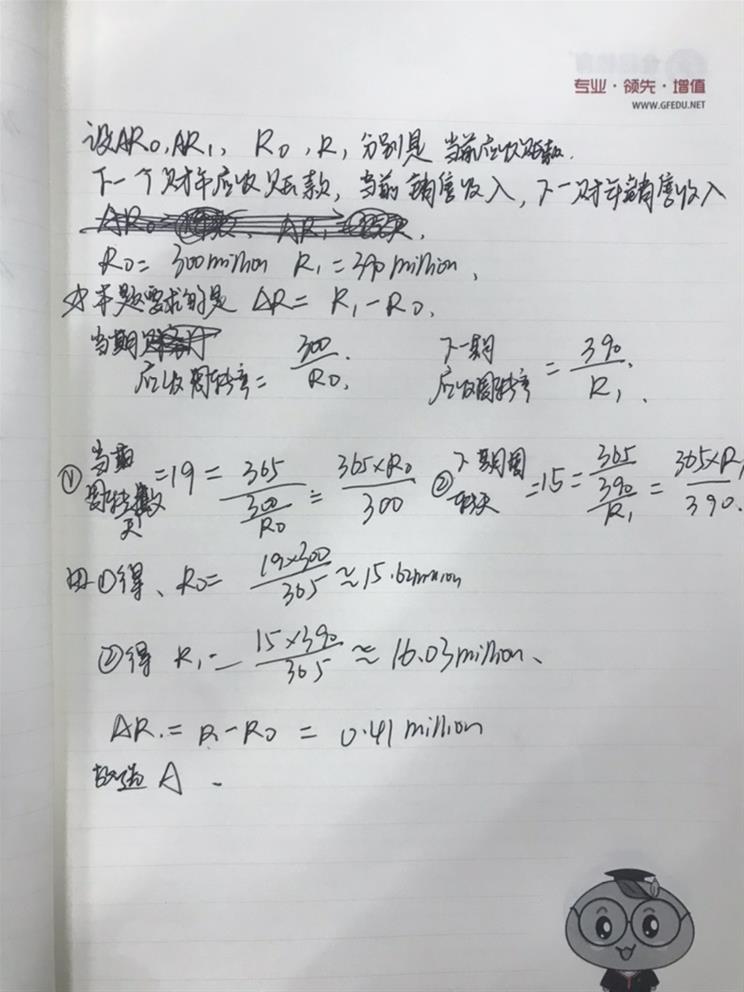 专业·领先·增值
WWW.GFEDU.NET
设AR0,AR1, R0,R1分别是 当前应收账款.
下一个财年应收账款,当前销售收入,下一财年销售收入
R0= 300million R1=390million,
本题要求的是 ΔR= R1-R0.
当期
应收周转率= 300/R0. 下一期 应收周转率 = 390/R1.
① 当期周转天数 =19= 365/(300/R0) = 365×R0/300 ② 下期周转天 =15= 365/(390/R1) = 365×R1/390.
由①得、R0= 19×300/365 ≈15.62million
②得 R1= 15×390/365 ≈ 16.03million、
ΔR.= R1-R0 = 0.41 million
故选 A .